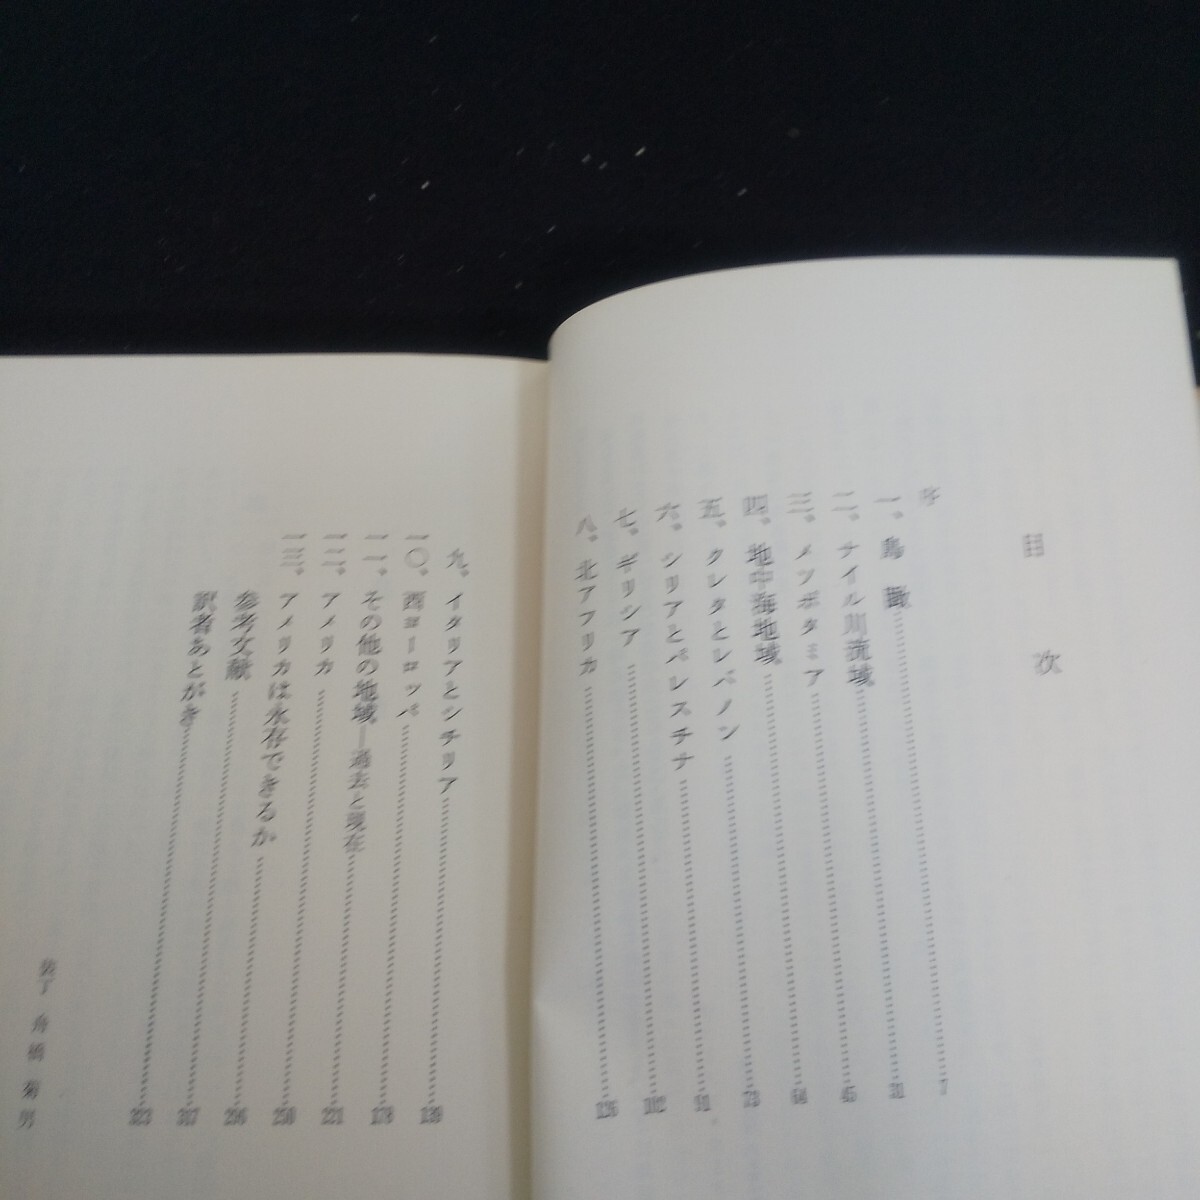 目次
序
一、鳥瞰……7
二、ナイル川流域……31
三、メソポタミア……45
四、地中海地域……64
五、クレタとレバノン……73
六、シリアとパレスチナ……91
七、ギリシア……102
八、北アフリカ……126
九、イタリアとシチリア……139
一〇、西ヨーロッパ……178
一一、その他の地域―過去と現在……221
一二、アメリカ……250
一三、アメリカは永存できるか……296
参考文献……317
訳者あとがき……323
装丁 舟橋菊男